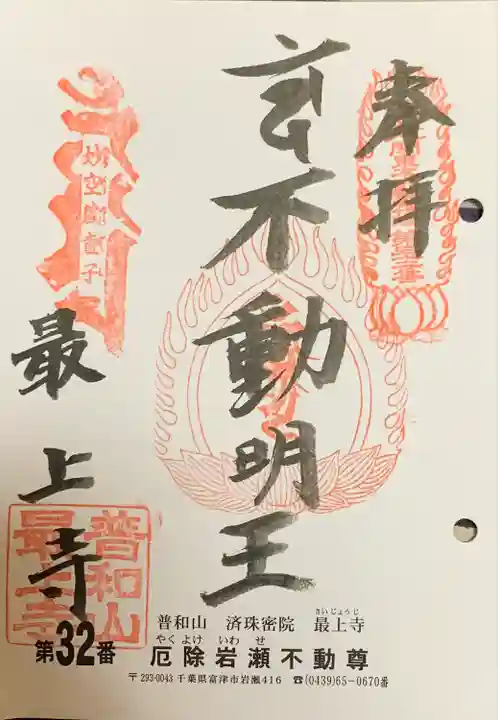 奉拝
玄不動明王
最上寺
普和山
最上寺
第32番
普和山 済珠密院 最上寺
さいじょうじ
厄除岩瀬不動尊
やくよけ いわせ
〒293-0043 千葉県富津市岩瀬416 ☎(0439)65-0670番